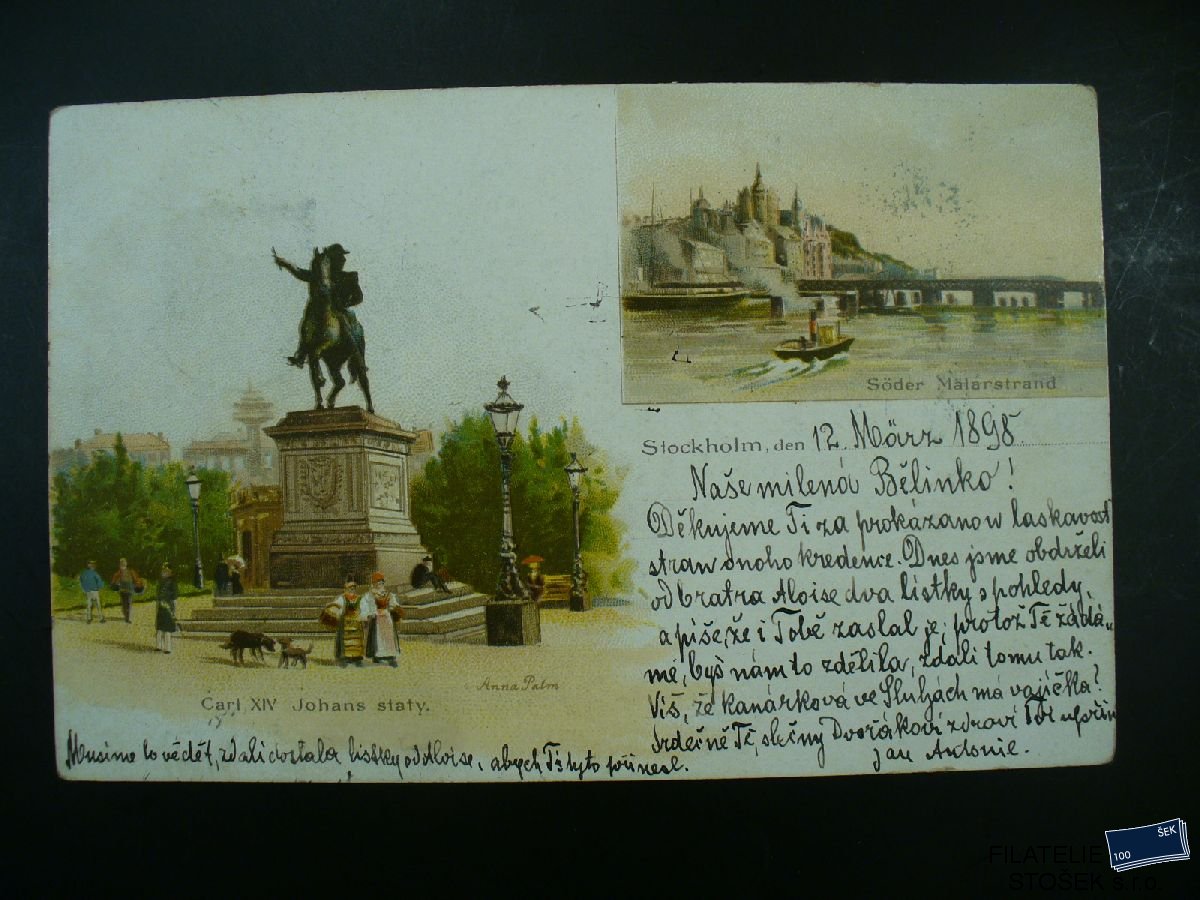 Söder Mälarstrand
Stockholm, den 12. März 1898.
Naše milená Bělinko!
Děkujeme Ti za prokázanou laskavost
stran onoho kredence. Dnes jsme obdrželi
od bratra Aloise dva lístky s pohledy,
a píše, že i Tobě zaslal je; protož Tě žádá-
me, bys nám to zdělila, zdali tomu tak.
Víš, že kanárková ve Sluhách má vajíčka?
Srdečně Tě, slečny Dvořákovi zdraví Tvůj upřím
Jan Antonie.
Anna Palm
Carl XIV Johans staty.
Musíme to vědět, zdali dostala lístky od Aloise, abych Ti tyto přinesl.
FILATELIE
STOŠEK s.r.o.
100 ŠEK